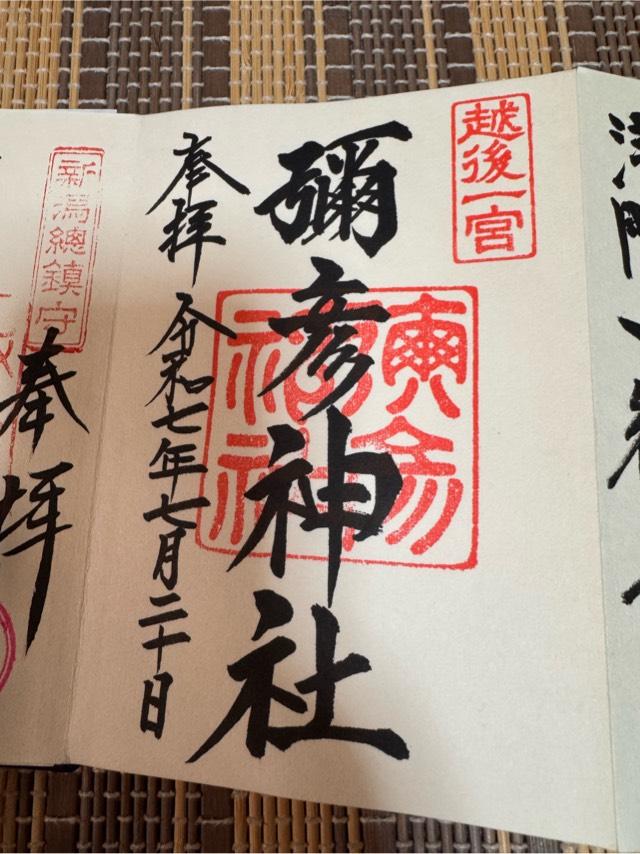 越後一宮
彌彦神社
奉拝
令和七年七月二十日
新潟總鎮守
奉拝